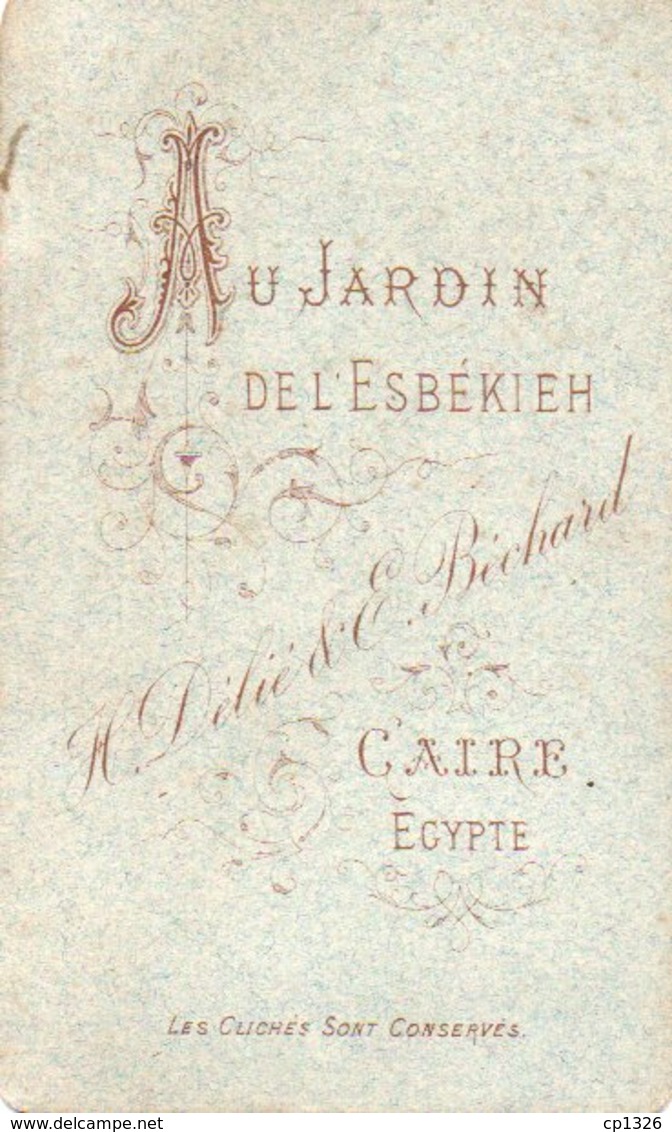 Au Jardin
de l'Esbékieh
H. Délié & E. Béchard
Caire
Égypte
Les Clichés Sont Conservés.
delcampe.net
cp1326